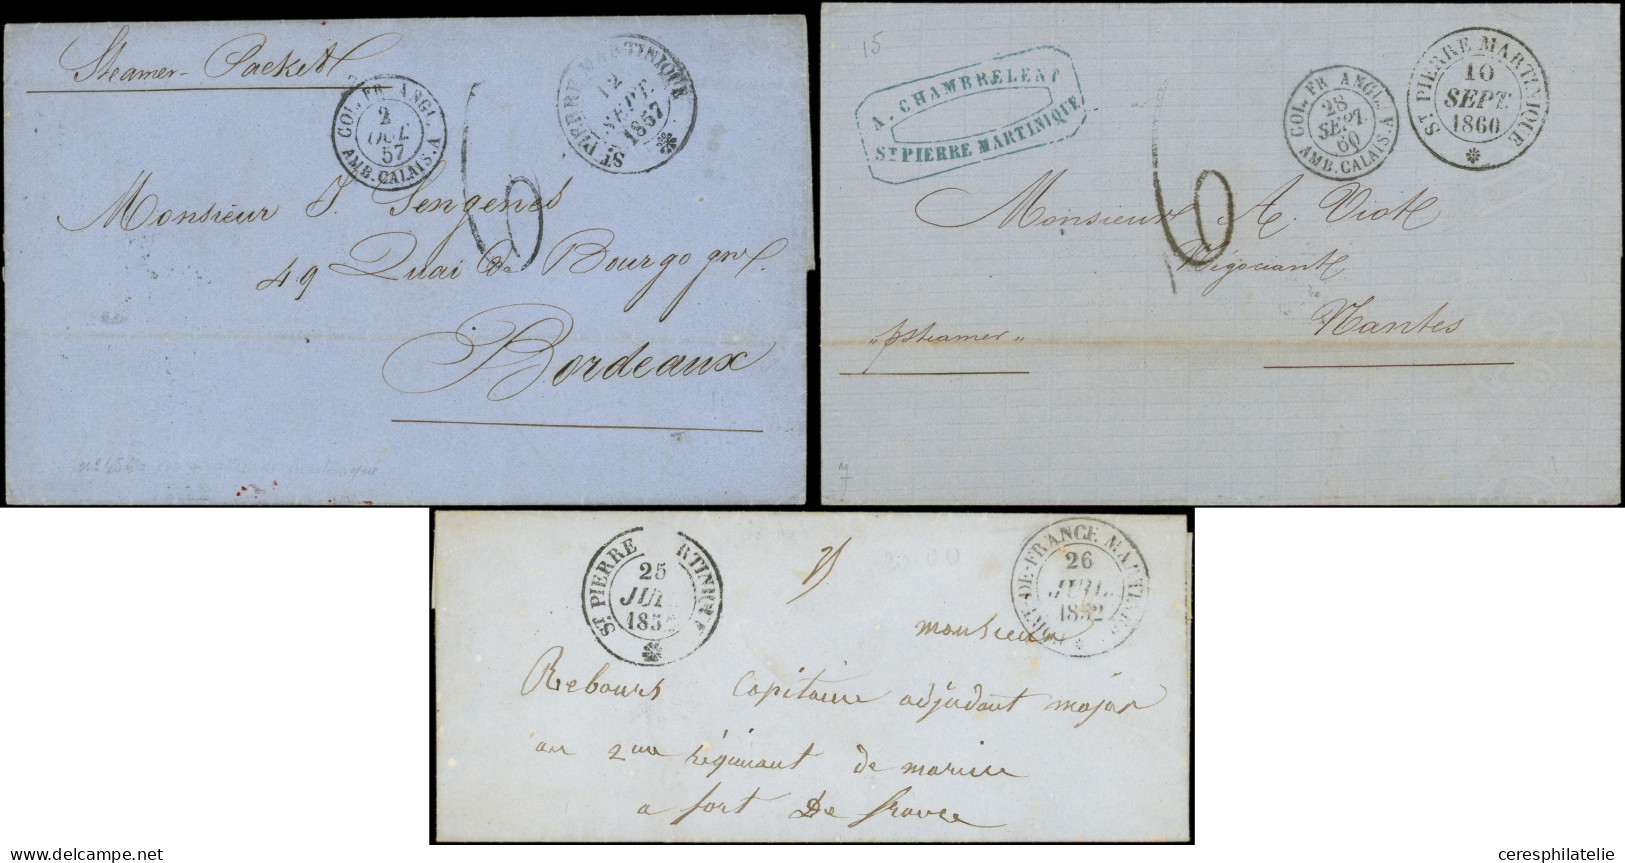 Steamer-Packet
COL. FR. ANGL. A. AMB. CALAIS. A
2
OCT.
57
ST PIERRE MARTINIQUE
12
SEPT.
1857
Monsieur J. Sengenes
49 Quai de Bourgogne.
Bordeaux
15
A. CHAMBRELENT
ST PIERRE MARTINIQUE
COL. FR. ANGL. AMB. CALAIS. A
28
SEPT.
60
ST PIERRE MARTINIQUE
10
SEPT.
1860
Monsieur A. Viot
Négociant
Nantes
"p Steamer"
ST PIERRE MARTINIQUE
25
JUIL.
1852
FORT-DE-FRANCE MARTINIQUE
26
JUIL.
1852
monsieur
Rebours capitaine adjudant major
au 2me régiment de marine
a fort De france
delcampe.net
ceresphilatelie